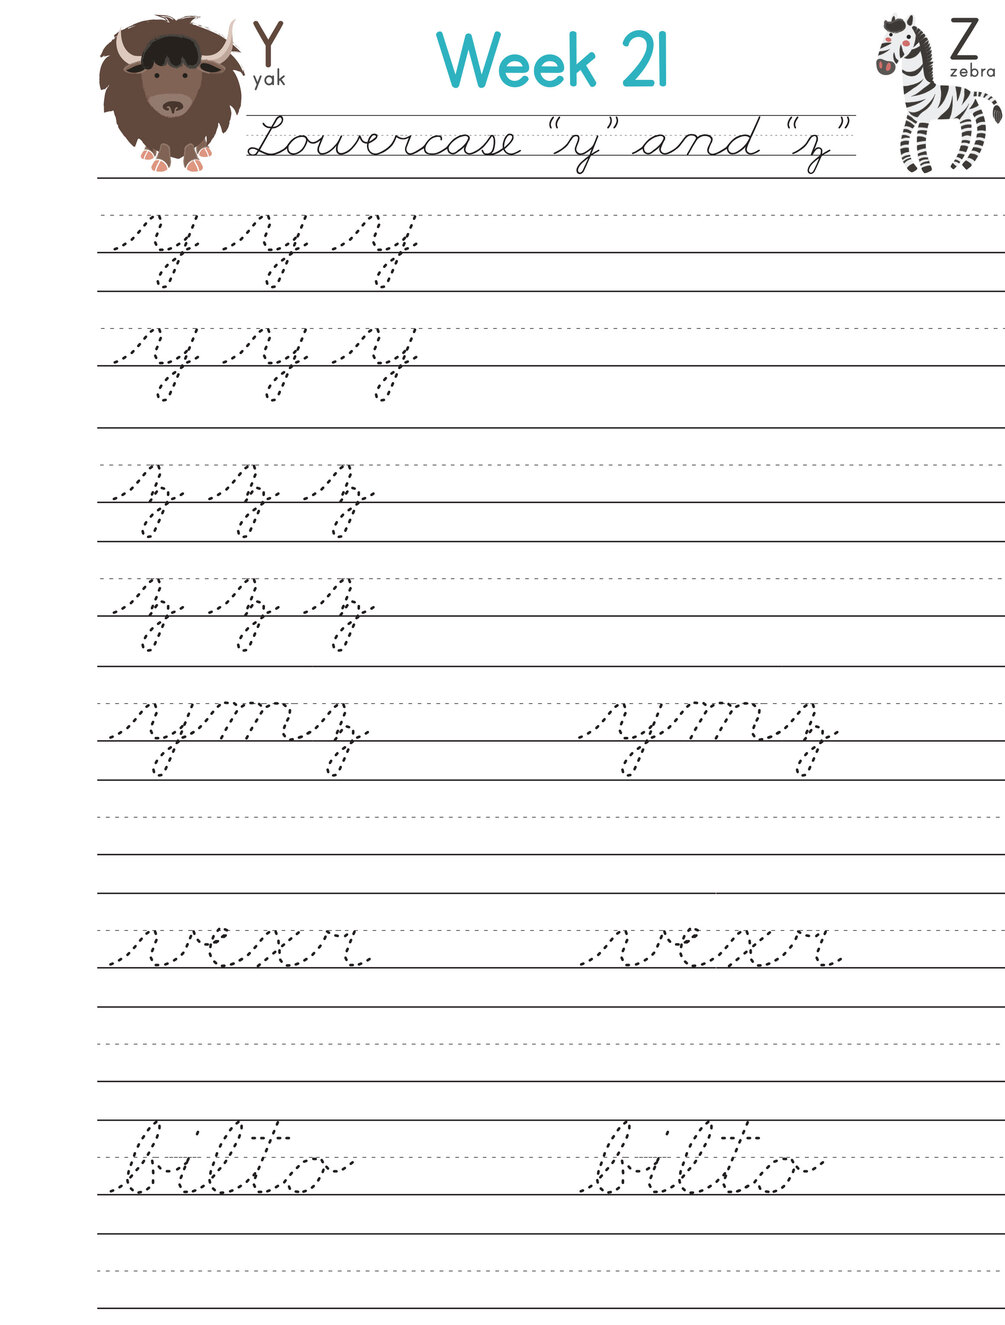 Y
yak
Week 21
Z
zebra
Lowercase “y” and “z”
y y y
y y y
z z z
z z z
ymz ymz
vexr vexr
bilto bilto